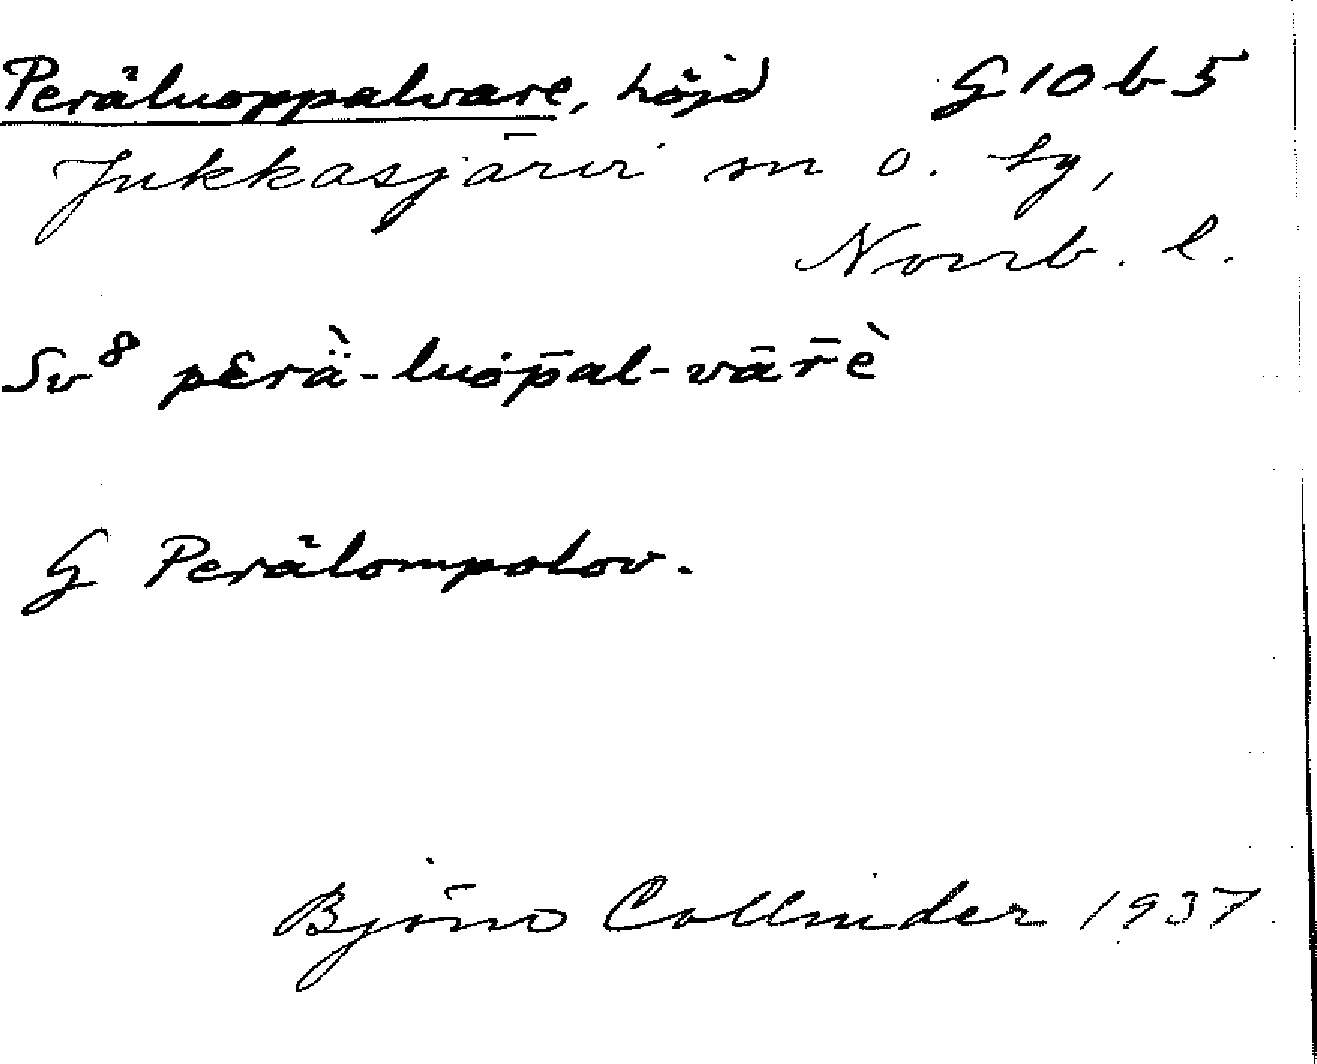 Peräluoppalvare, höjd G 10 b 5
Jukkasjärvi sn o. tg,
Norrb. l.
Sv⁸ pɛrä̀-luȯp̄al-vār̄ɛ̀
G Perälompolov.
Björn Collinder 1937